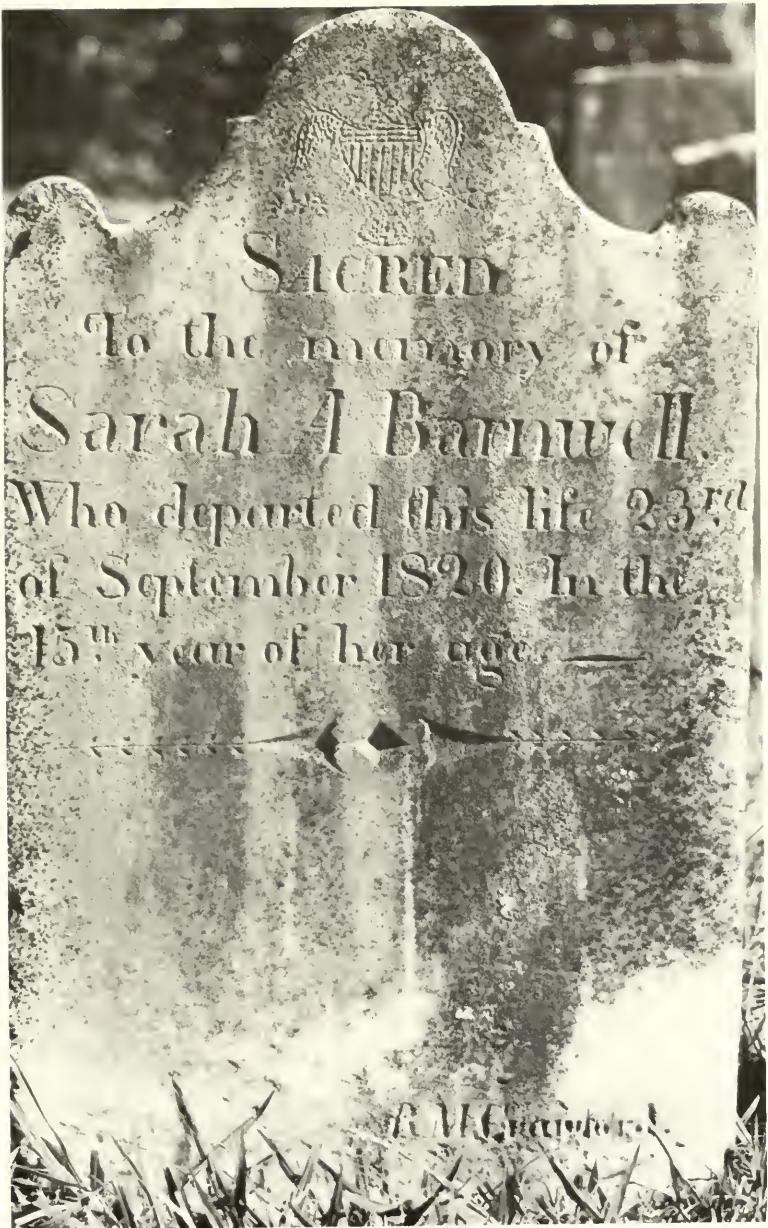 SACRED
To the memory of
Sarah A Barnwell.
Who departed this life 23rd
of September 1820. In the
15th year of her age —
R. M. Crawford.